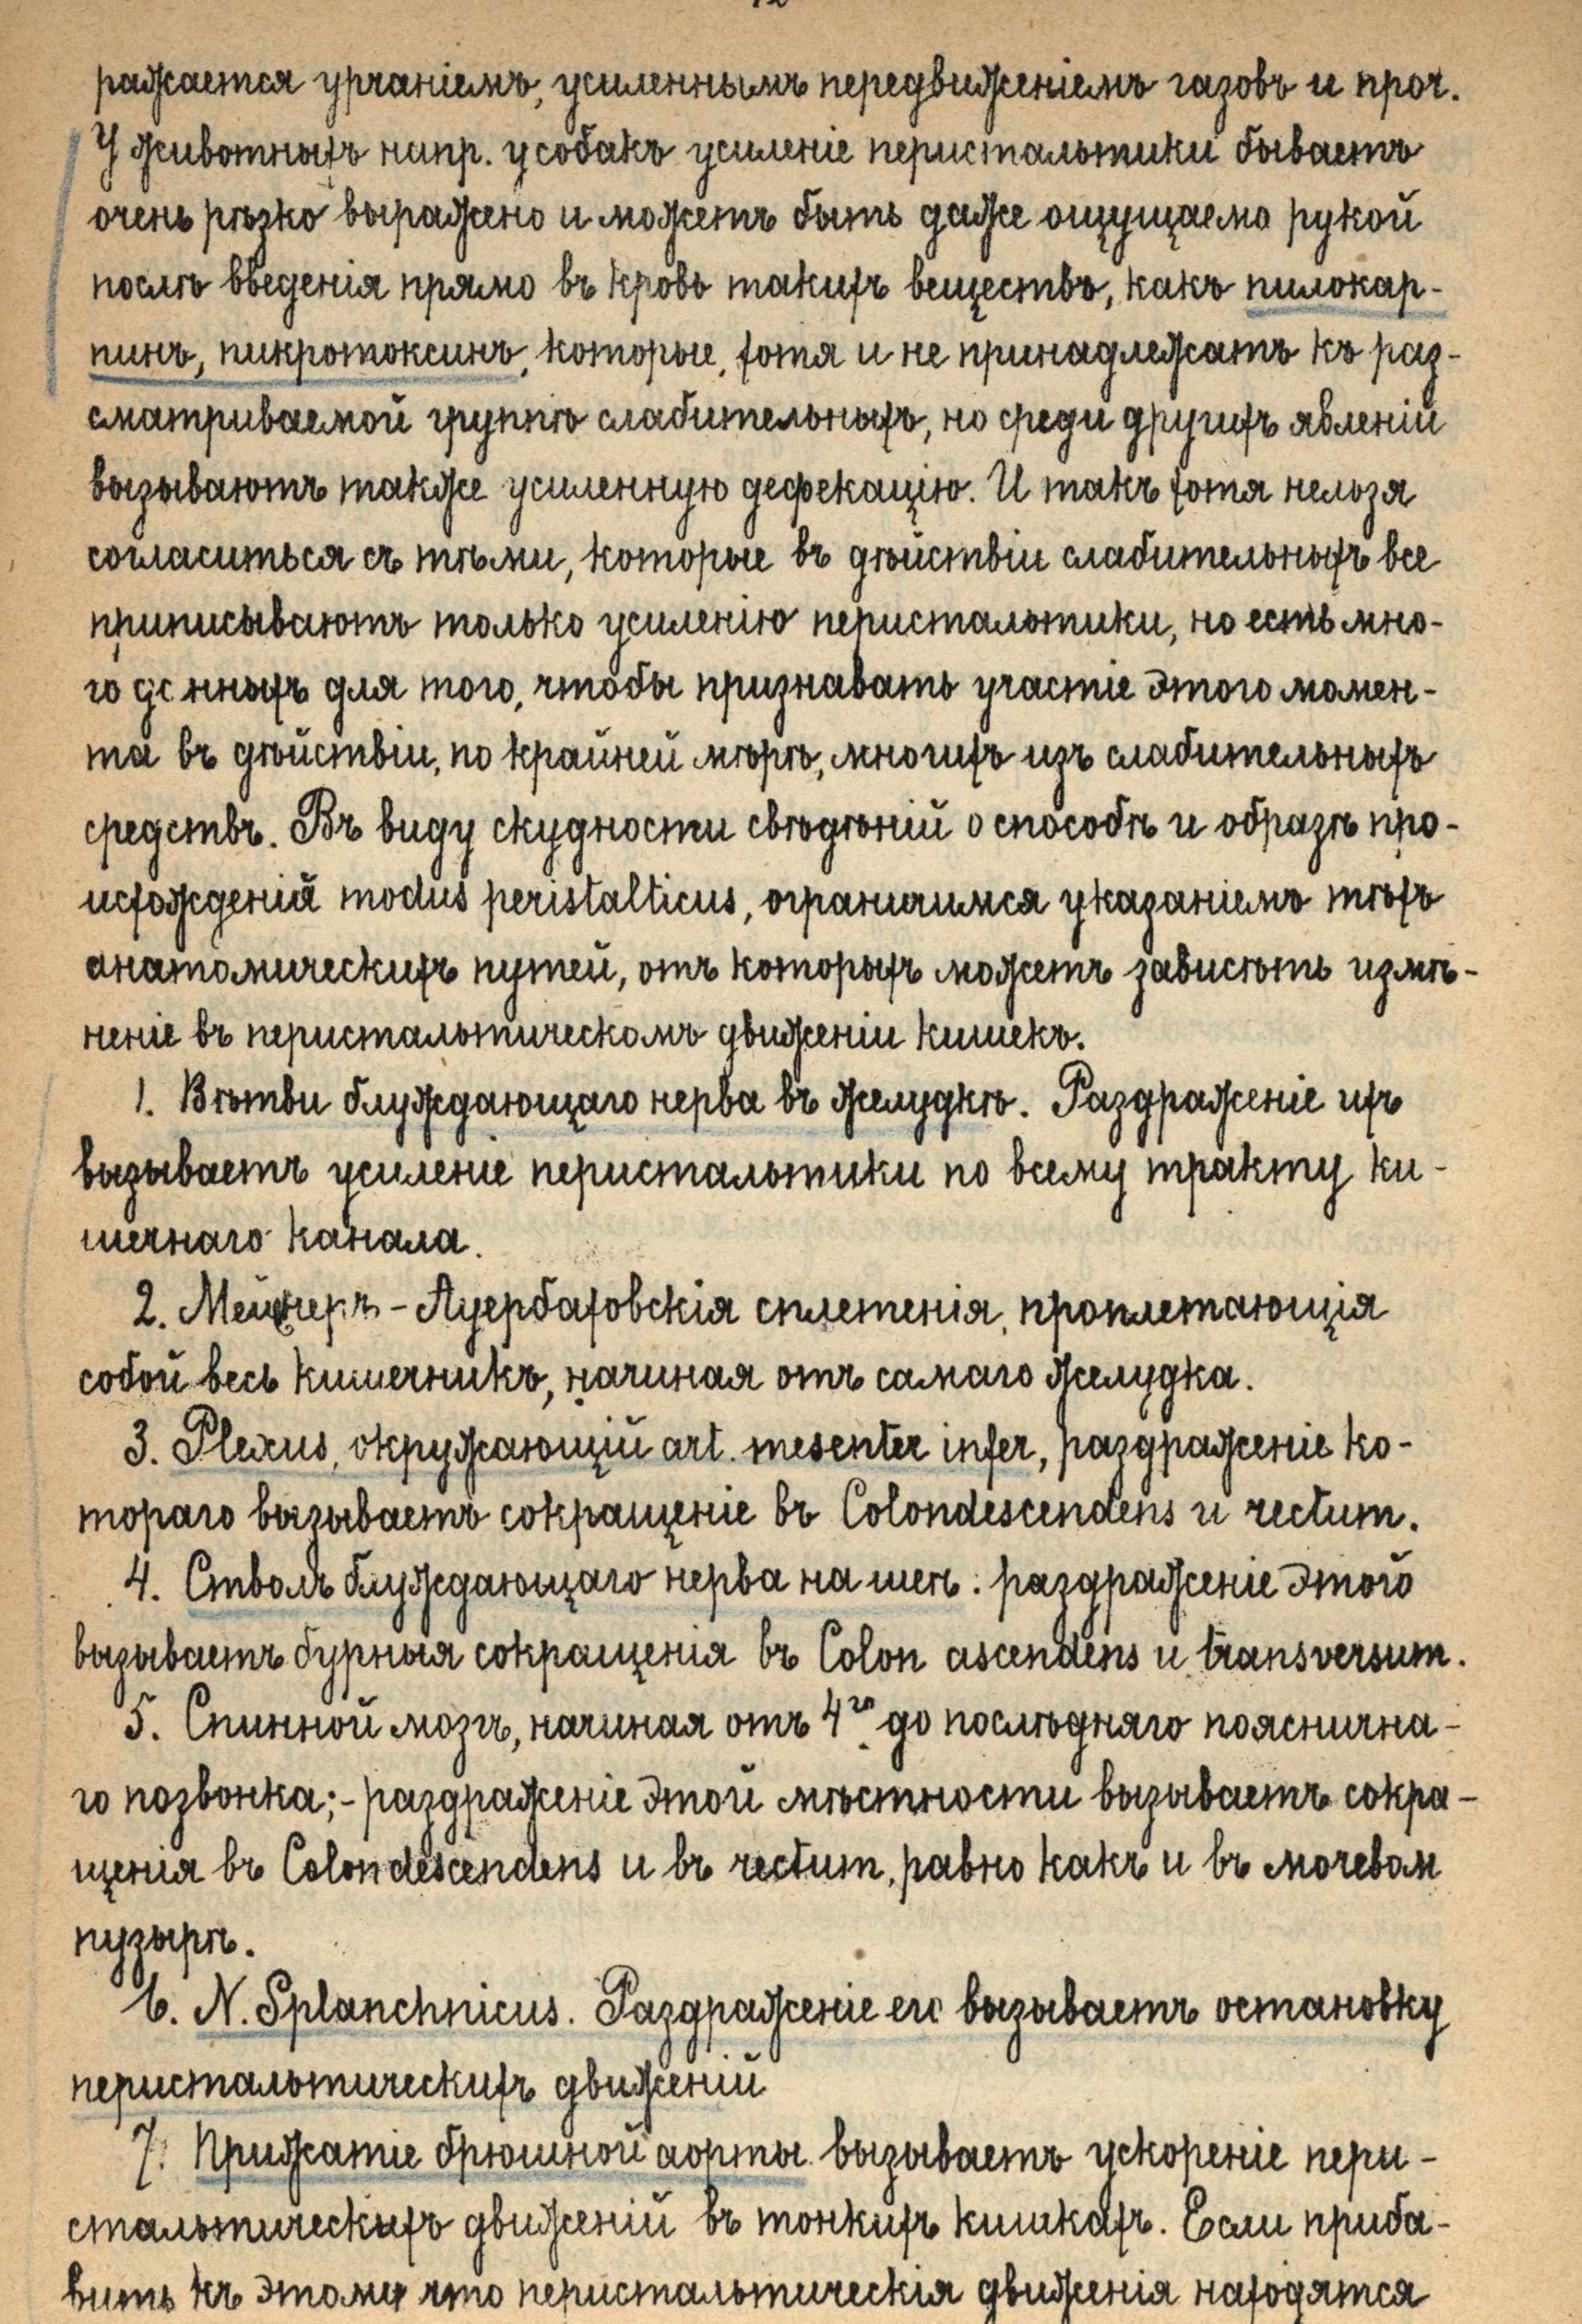 ражается урчаніемъ, усиленнымъ передвиженіемъ газовъ и проч.
У животныхъ напр. у собакъ усиленіе перистальтики бываетъ
очень рѣзко выражено и можетъ быть даже ощущаемо рукой
послѣ введенія прямо въ кровь такихъ веществъ, какъ пилокар-
пинъ, пикротоксинъ, которые, хотя и не принадлежатъ къ раз-
сматриваемой группѣ слабительныхъ, но среди другихъ явленій
вызываютъ также усиленную дефекацію. И такъ хотя нельзя
согласиться съ тѣми, которые въ дѣйствіи слабительныхъ все
приписываютъ только усиленію перистальтики, но есть мно-
го данныхъ для того, чтобы признавать участіе этого момен-
та въ дѣйствіи, по крайней мѣрѣ, многихъ изъ слабительныхъ
средствъ. Въ виду скудности свѣдѣній о способѣ и образѣ про-
исхожденія modus peristalticus, ограничимся указаніемъ тѣхъ
анатомическихъ путей, отъ которыхъ можетъ зависѣть измѣ-
неніе въ перистальтическомъ движеніи кишекъ.
1. Вѣтви блуждающаго нерва въ желудкѣ. Раздраженіе ихъ
вызываетъ усиленіе перистальтики по всему тракту ки-
шечнаго канала.
2. Мейснеръ-Ауербаховскія сплетенія, проплетающія
собой весь кишечникъ, начиная отъ самаго желудка.
3. Plexus, окружающій art. mesenter infer, раздраженіе ко-
тораго вызываетъ сокращеніе въ Colondescendens и rectum.
4. Стволъ блуждающаго нерва на шеѣ: раздраженіе этого
вызываетъ бурныя сокращенія въ Colon ascendens и transversum.
5. Спинной мозгъ, начиная отъ 4го до послѣдняго пояснична-
го позвонка;- раздраженіе этой мѣстности вызываетъ сокра-
щенія въ Colondescendens и въ rectum, равно какъ и въ мочевом
пузырѣ.
6. N. Splanchnicus. Раздраженіе его вызываетъ остановку
перистальтическихъ движеній
7. Прижатіе брюшной аорты вызываетъ ускореніе пери-
стальтическихъ движеній въ тонкихъ кишкахъ. Если приба-
вить къ этому что перистальтическія движенія находятся